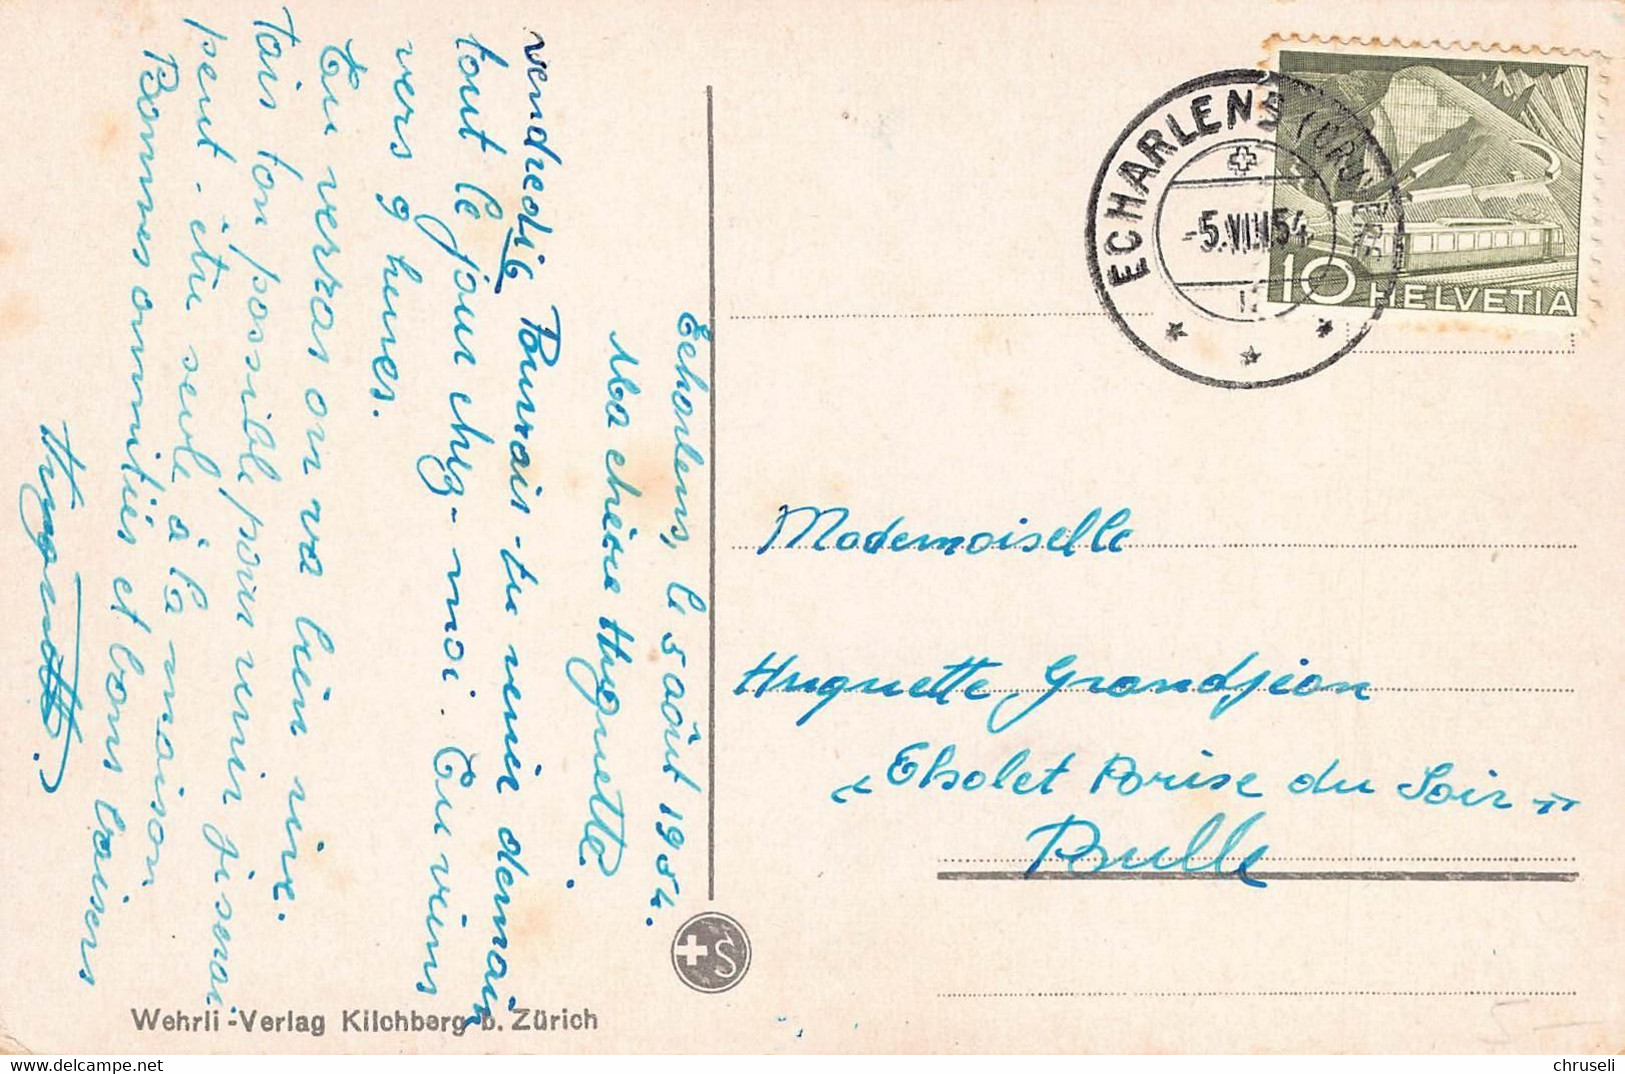 Echarlens, le 5 août 1954.
Ma chère Huguette.
Pourrais-tu venir demain
vendredi 6 tout le jour chez-moi. Tu viens
vers 9 heures.
Tu verras on va bien rire.
Fais ton possible pour venir je serai
peut-être seule à la maison
Bonnes ammitiés et bons baisers
ECHARLENS (GRUYÈRE)
-5.VIII.54
10 HELVETIA
Mademoiselle
Huguette Grandjean
Chalet Brise du Soir
Bulle
Wehrli-Verlag Kilchberg b. Zürich
chruseli